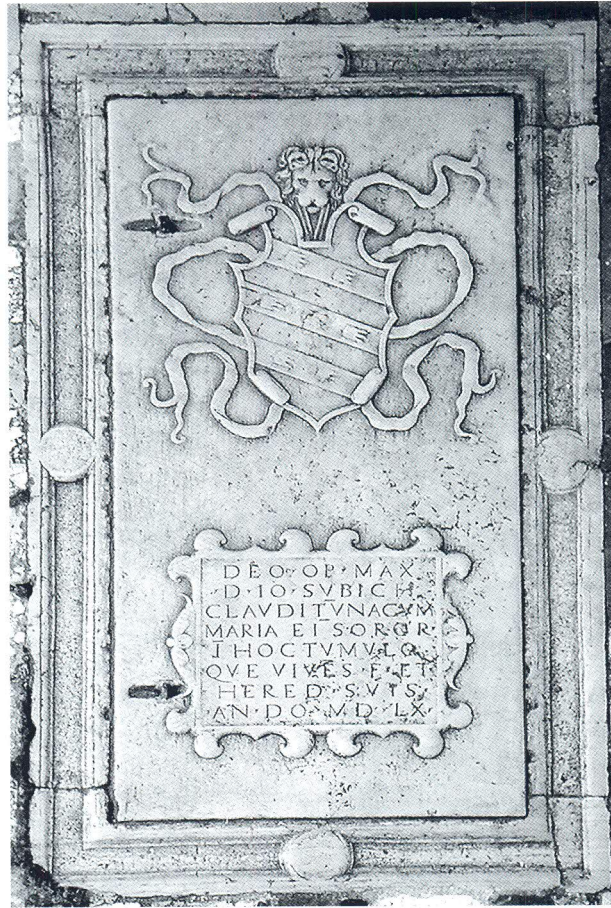 DEO · OP · MAX
D · IO · SVBICH
CLAVDIT̅VNACVM
MARIA EI SOROR
I̅HOCTVMVLO
QVE VIVE̅S · F · ET
HERED · SVIS
AN · DO · MD · LX ·